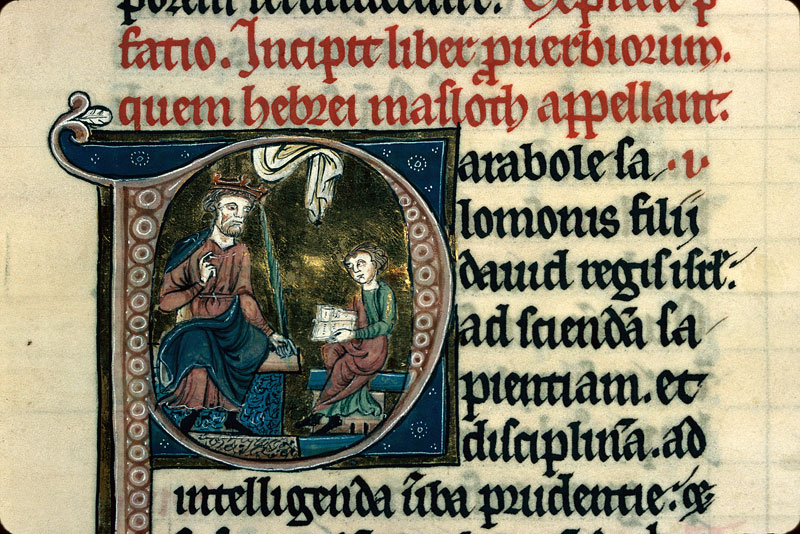 fatio. Incipit liber puerbiorum.
quem hebrei masloth appellant.
Parabole sa
lomonis filii
dauid regis isrl.
ad sciendā sa
pientiam. et
disciplinā. ad
intelligenda ūba prudentie.